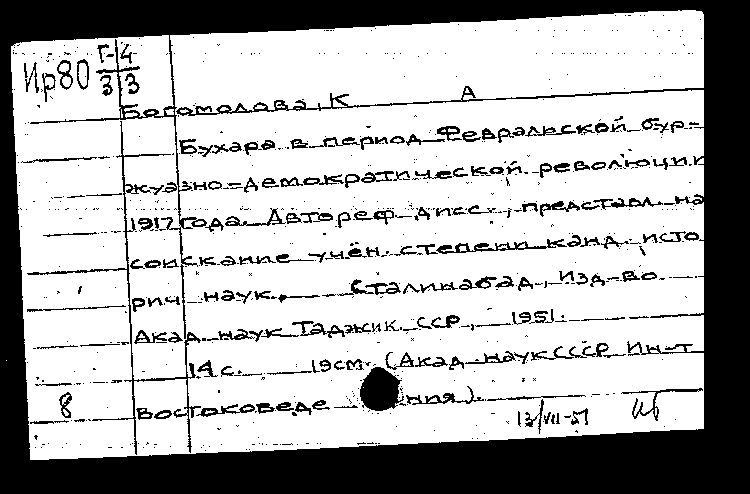 Ир80 Г-4
3 3
Богомолова, К А
Бухара в период Февральской бур-
жуазно-демократической революции
1917 года. Автореф. дисс., представл. на
соискание учён. степени канд. исто
рич наук. Сталинабад, Изд-во
Акад. наук Таджик. ССР, 1951.
14 с. 19см. (Акад. наук СССР Ин-т
8 востоковеде ния).
13/VII-51